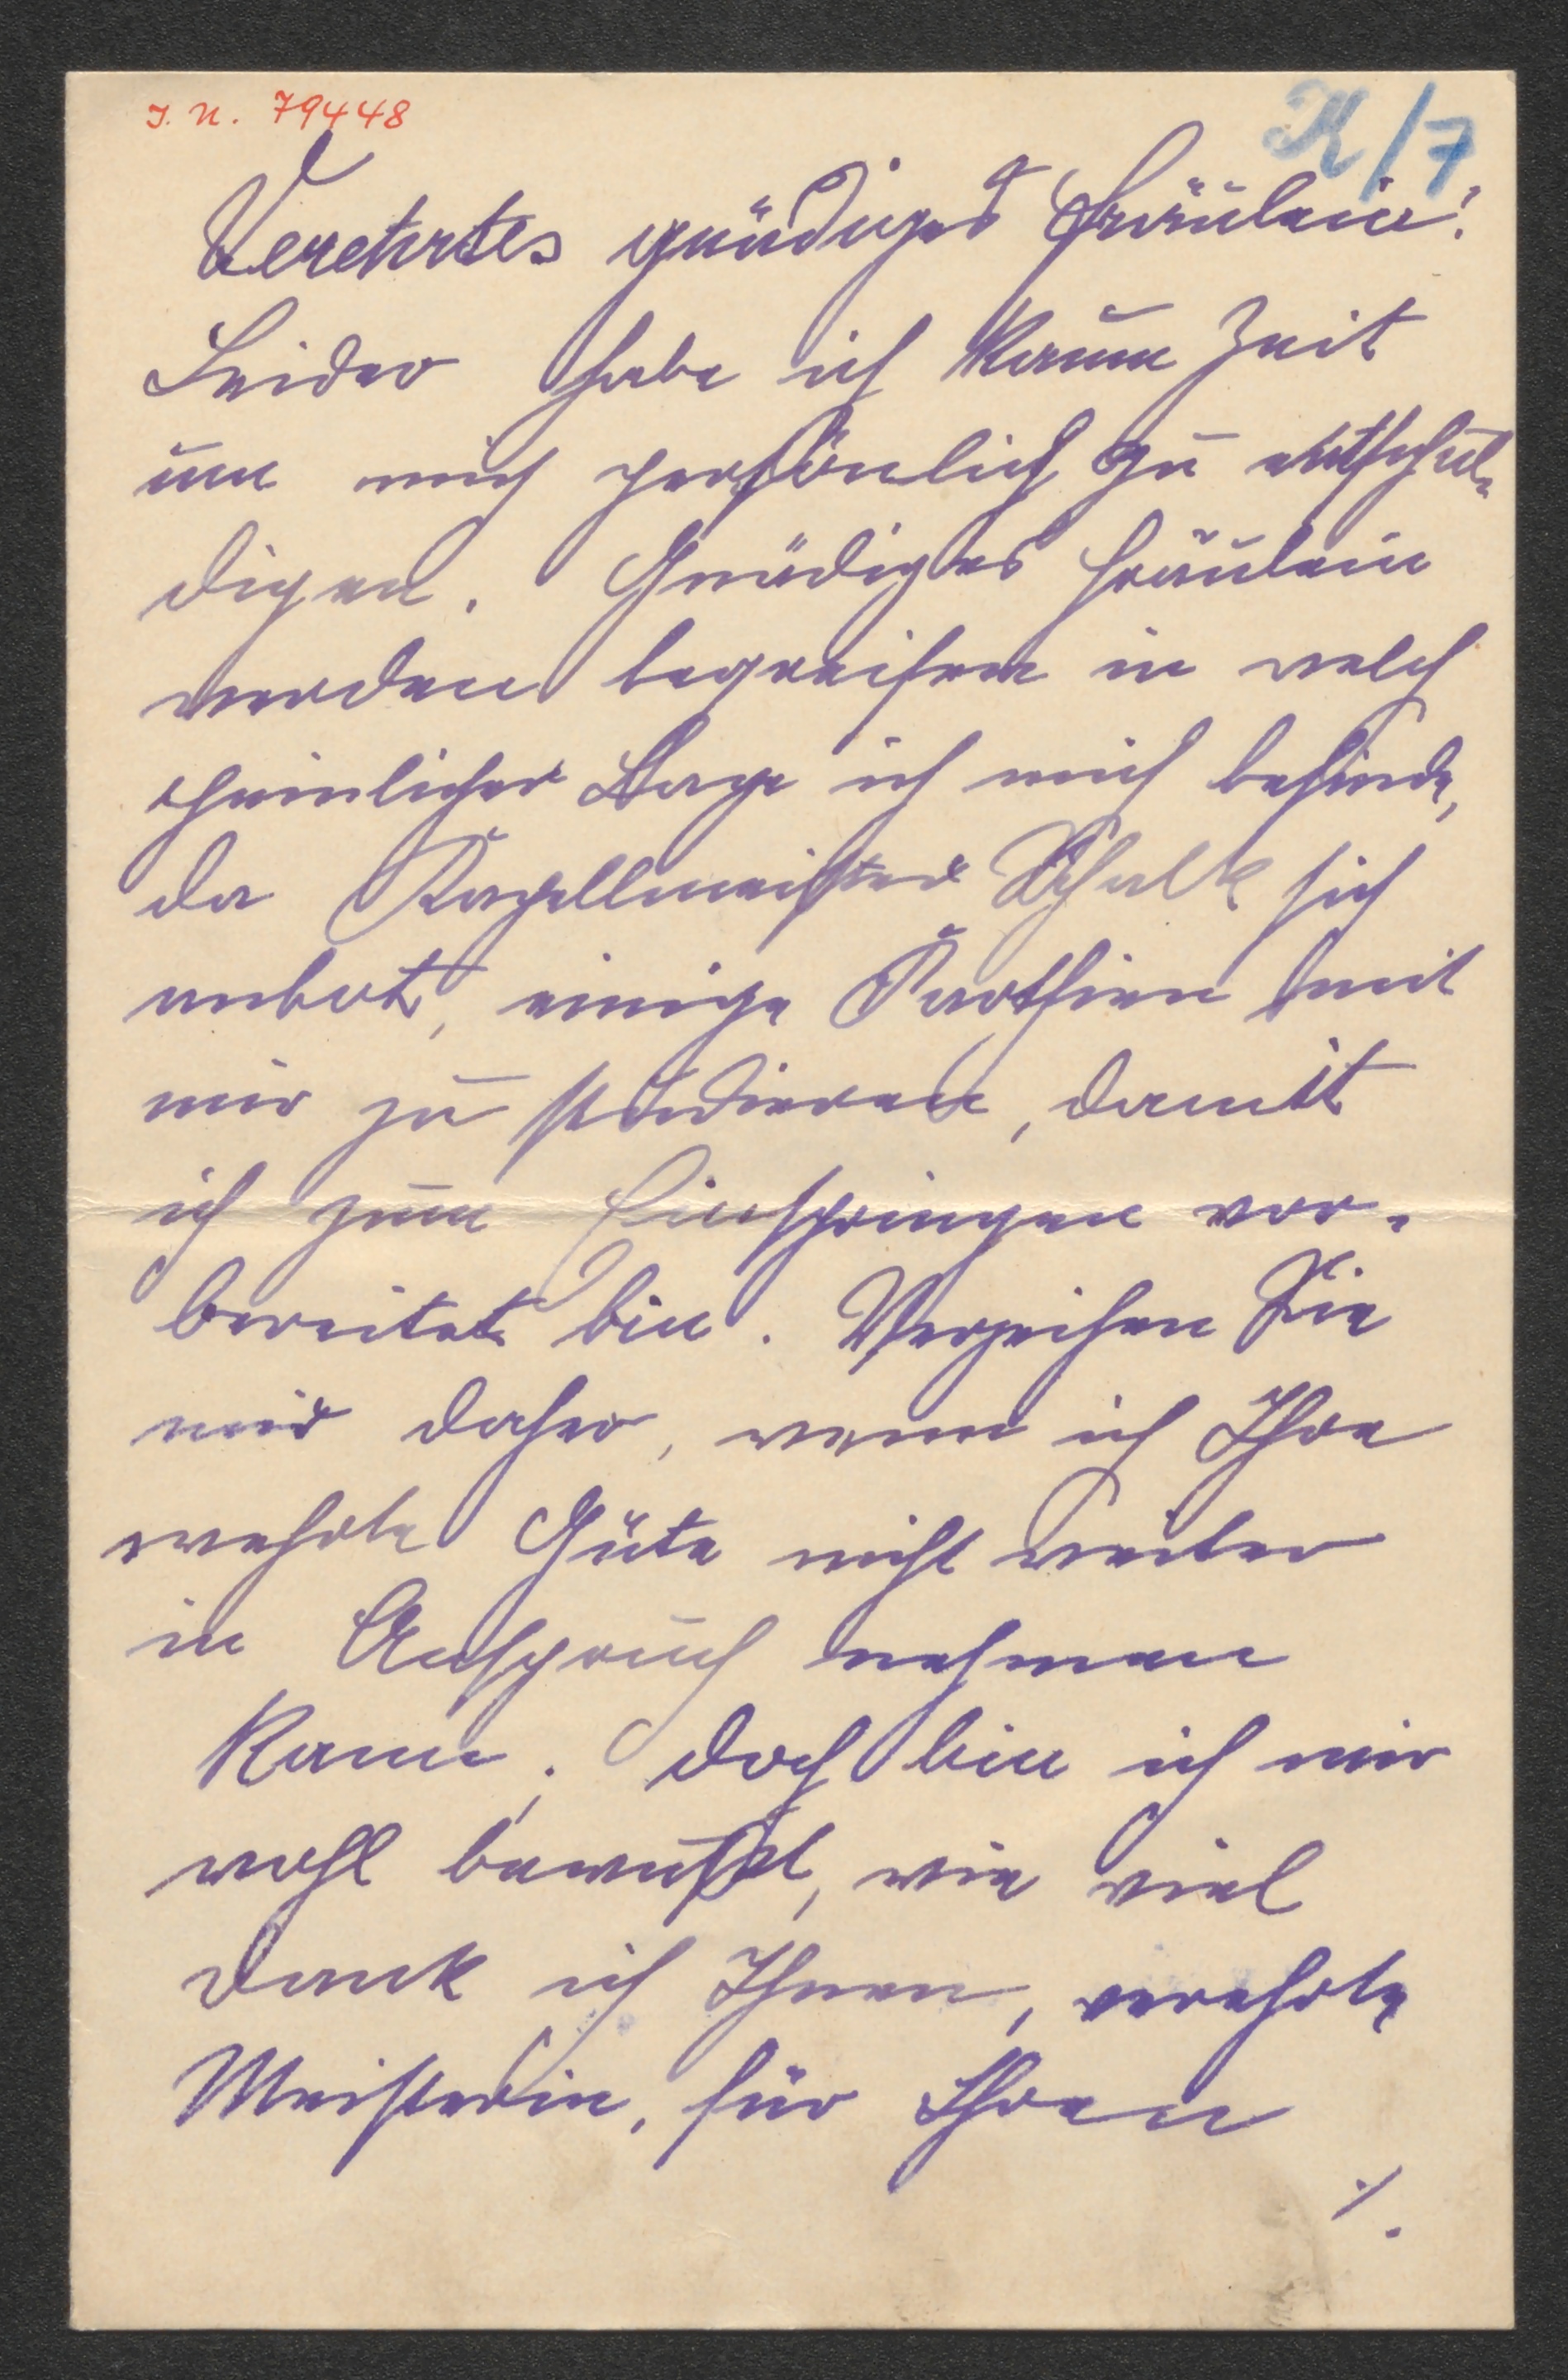 J. N. 79448
K/7
Verehrtes gnädiges Fräulein!
Leider habe ich kaum Zeit
um mich persönlich zu entschul-
digen. Gnädiges Fräulein
werden begreifen in welch
peinlicher Lage ich mich befinde,
da Kapellmeister Schalk sich
anbot, einige Parthien mit
mir zu studieren, damit
ich zum Einspringen vor-
bereitet bin. Verzeihen Sie
mir daher, wenn ich Ihre
werte Güte nicht weiter
in Anspruch nehmen
kann; doch bin ich mir
wohl bewußt, wie viel
Dank ich Ihnen, verehrte
Meisterin, für Ihren
./.